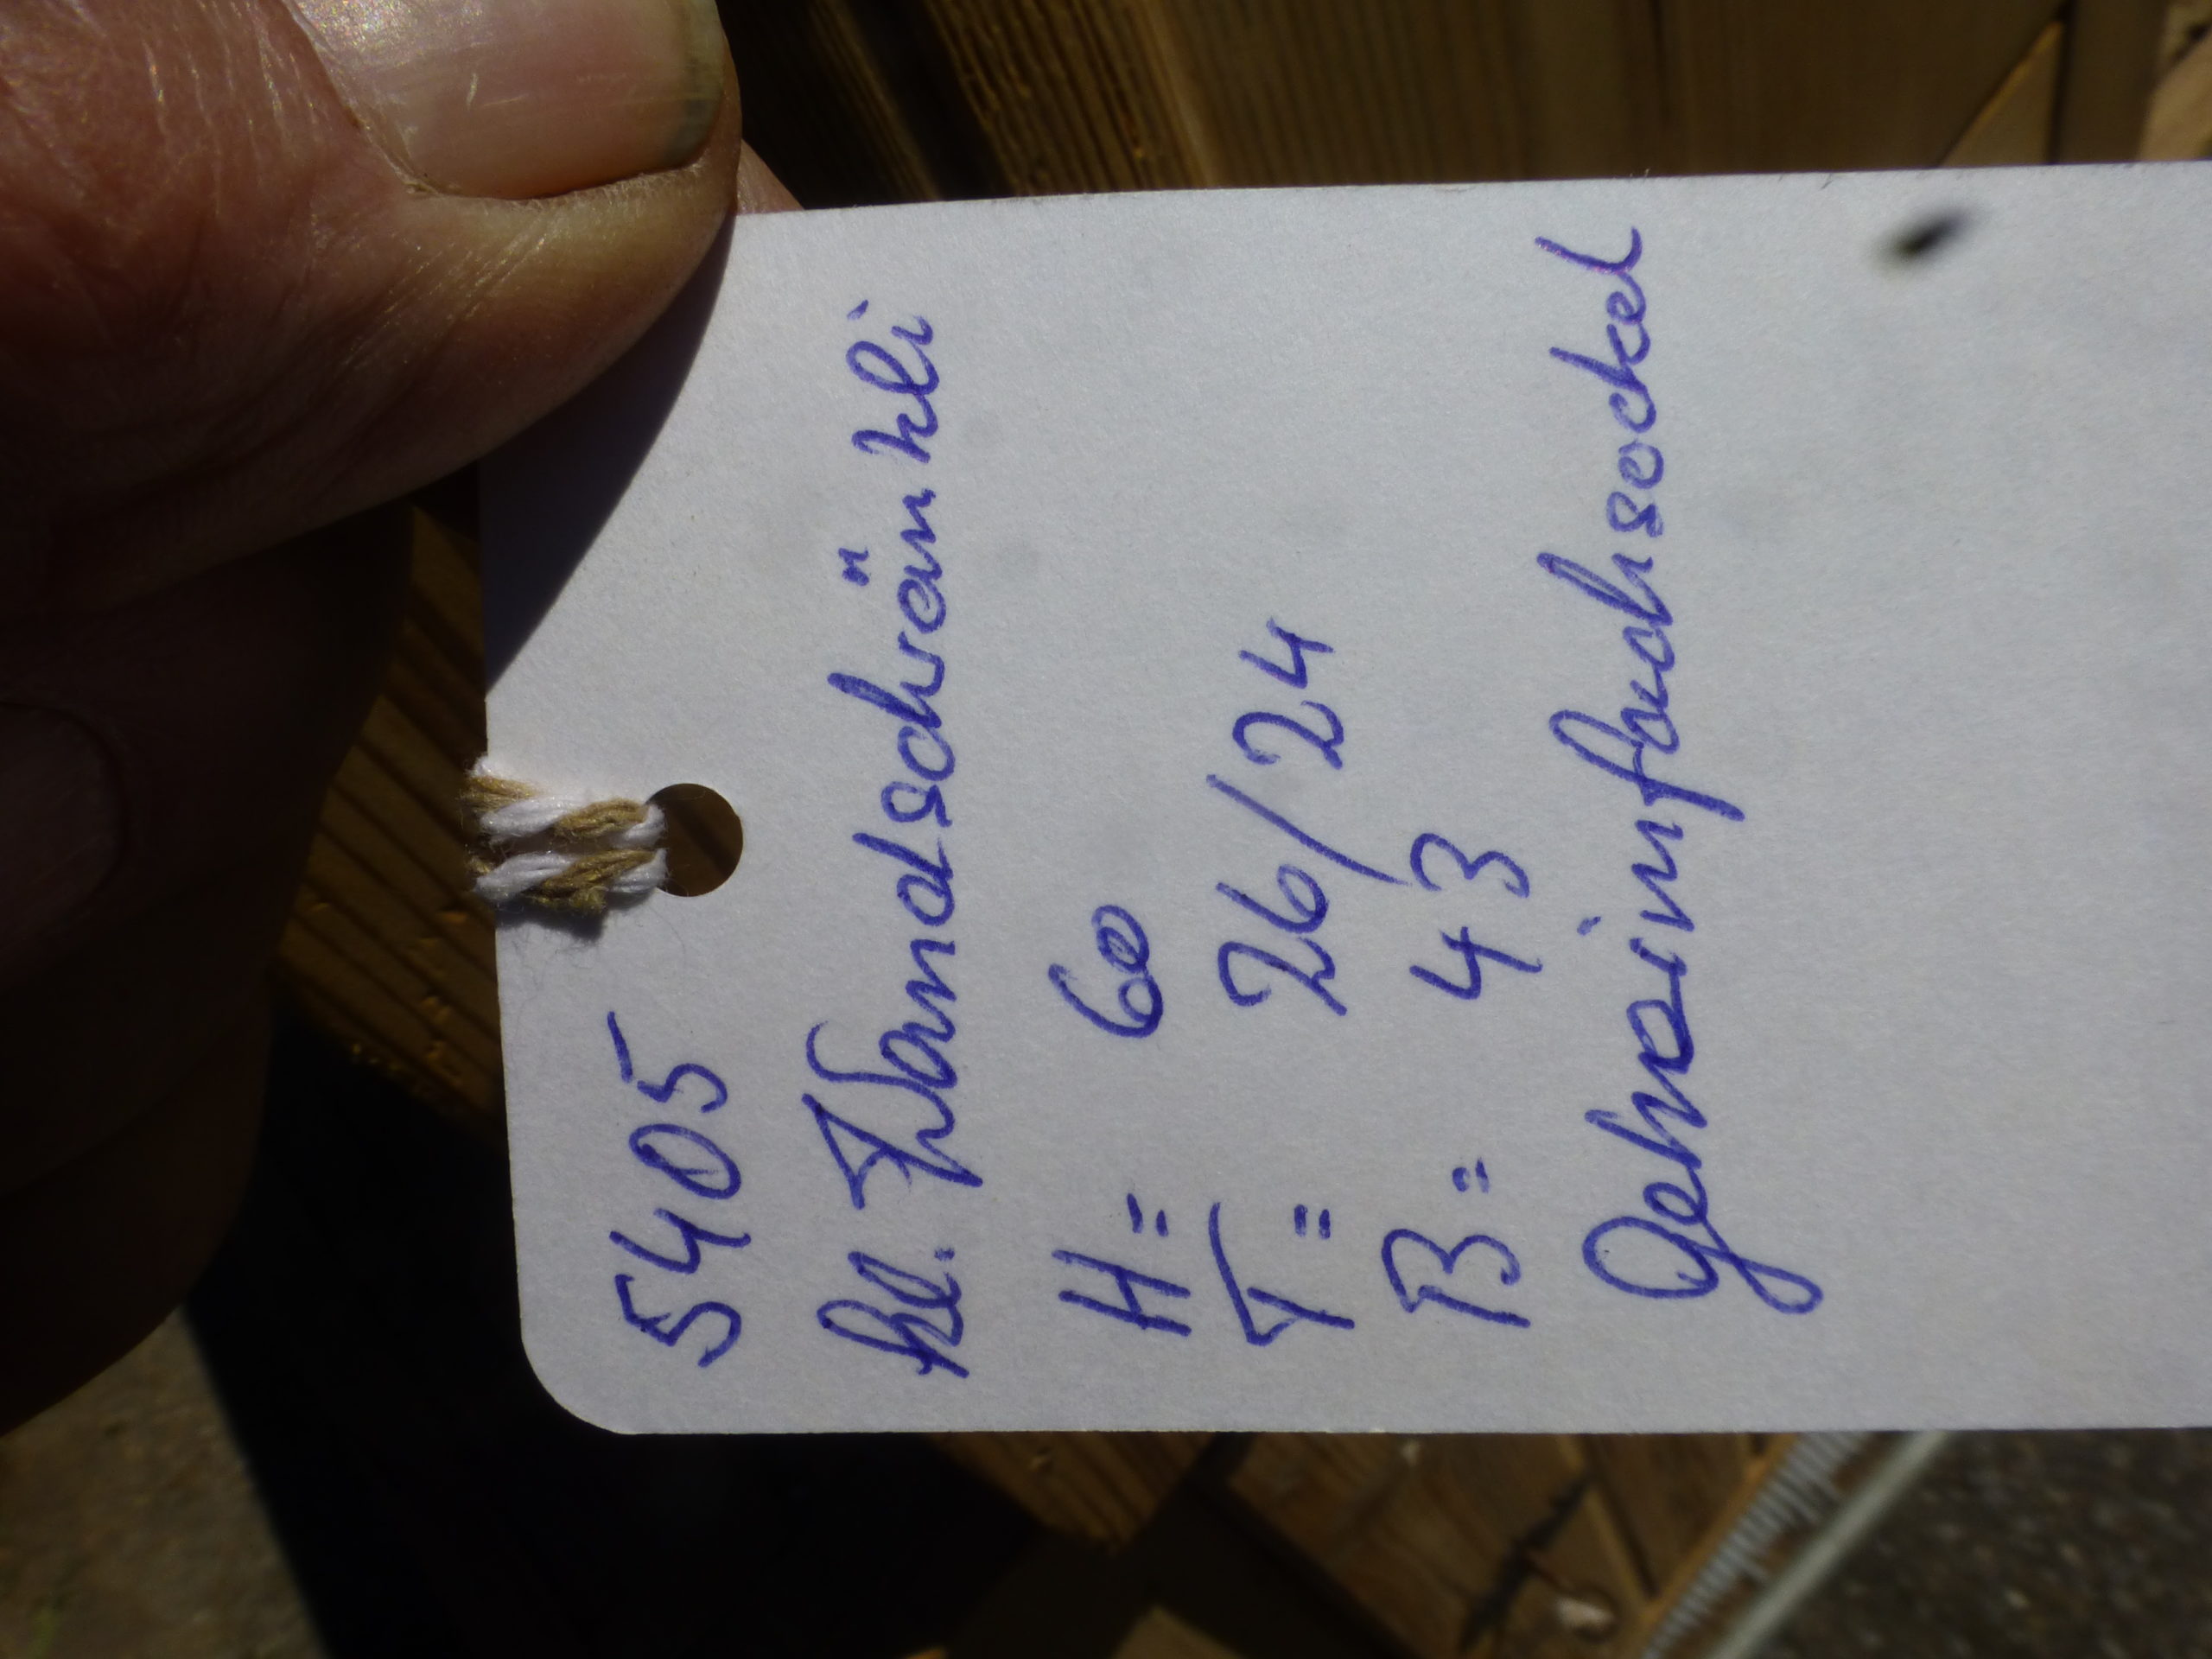 5405
kl. Wandschränkli
H= 60
T= 26/24
B= 43
Geheimfachsockel